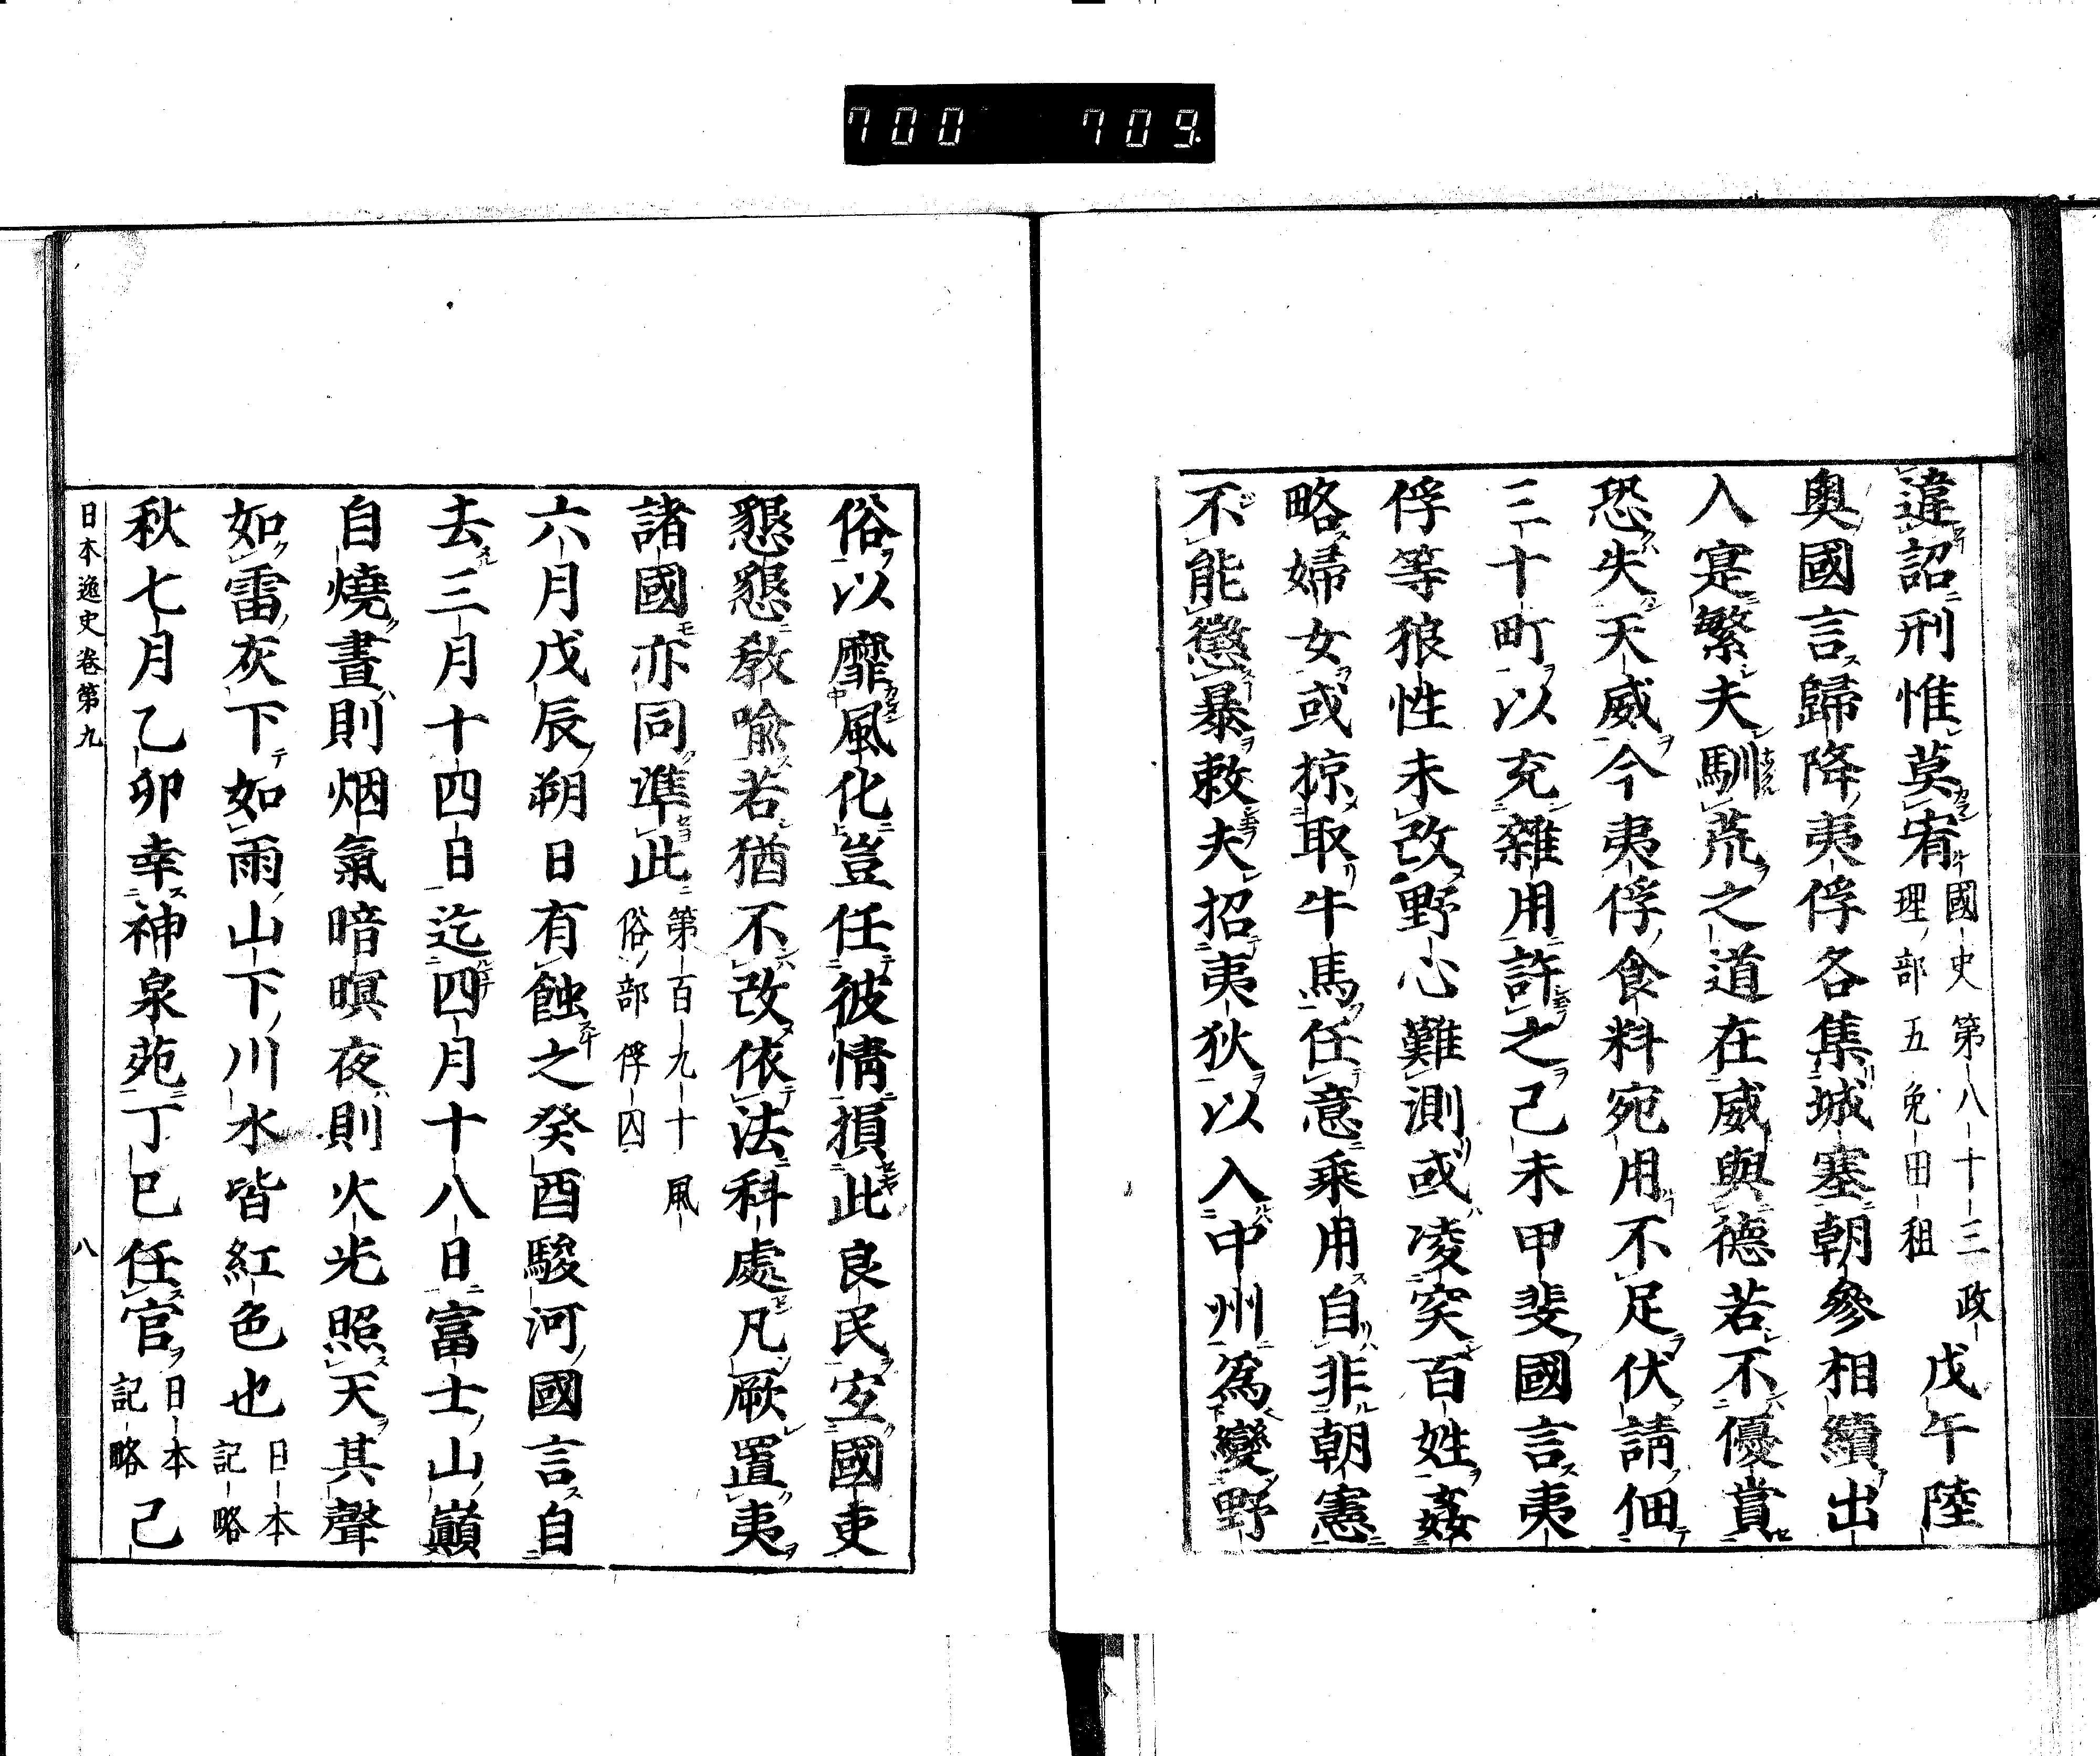 700 709
違詔刑惟莫宥國史第八十三政理部五免田租戊午陸
奧國言歸降夷俘各集城塞朝參相續出
入寔繁夫馴荒之道在威與德若不優賞
恐失天威今夷俘食料宛用不足伏請佃
三十町以充雜用許之己未甲斐國言夷
俘等狼性未改野心難測或凌突百姓姦
略婦女或掠取牛馬任意乘用自非朝憲
不能懲暴敕夫招夷狄以入中州爲變野
俗以靡風化豈任彼情損此良民宜國吏
懇懇教喩若猶不改依法科處凡厥置夷
諸國亦同準此第百九十風俗部俘囚
六月戊辰朔日有蝕之癸酉駿河國言自
去三月十四日迄四月十八日富士山巓
自燒晝則烟氣暗暝夜則火光照天其聲
如雷灰下如雨山下川水皆紅色也日本記略
秋七月乙卯幸神泉苑丁巳任官日本記略己
日本逸史卷第九 八